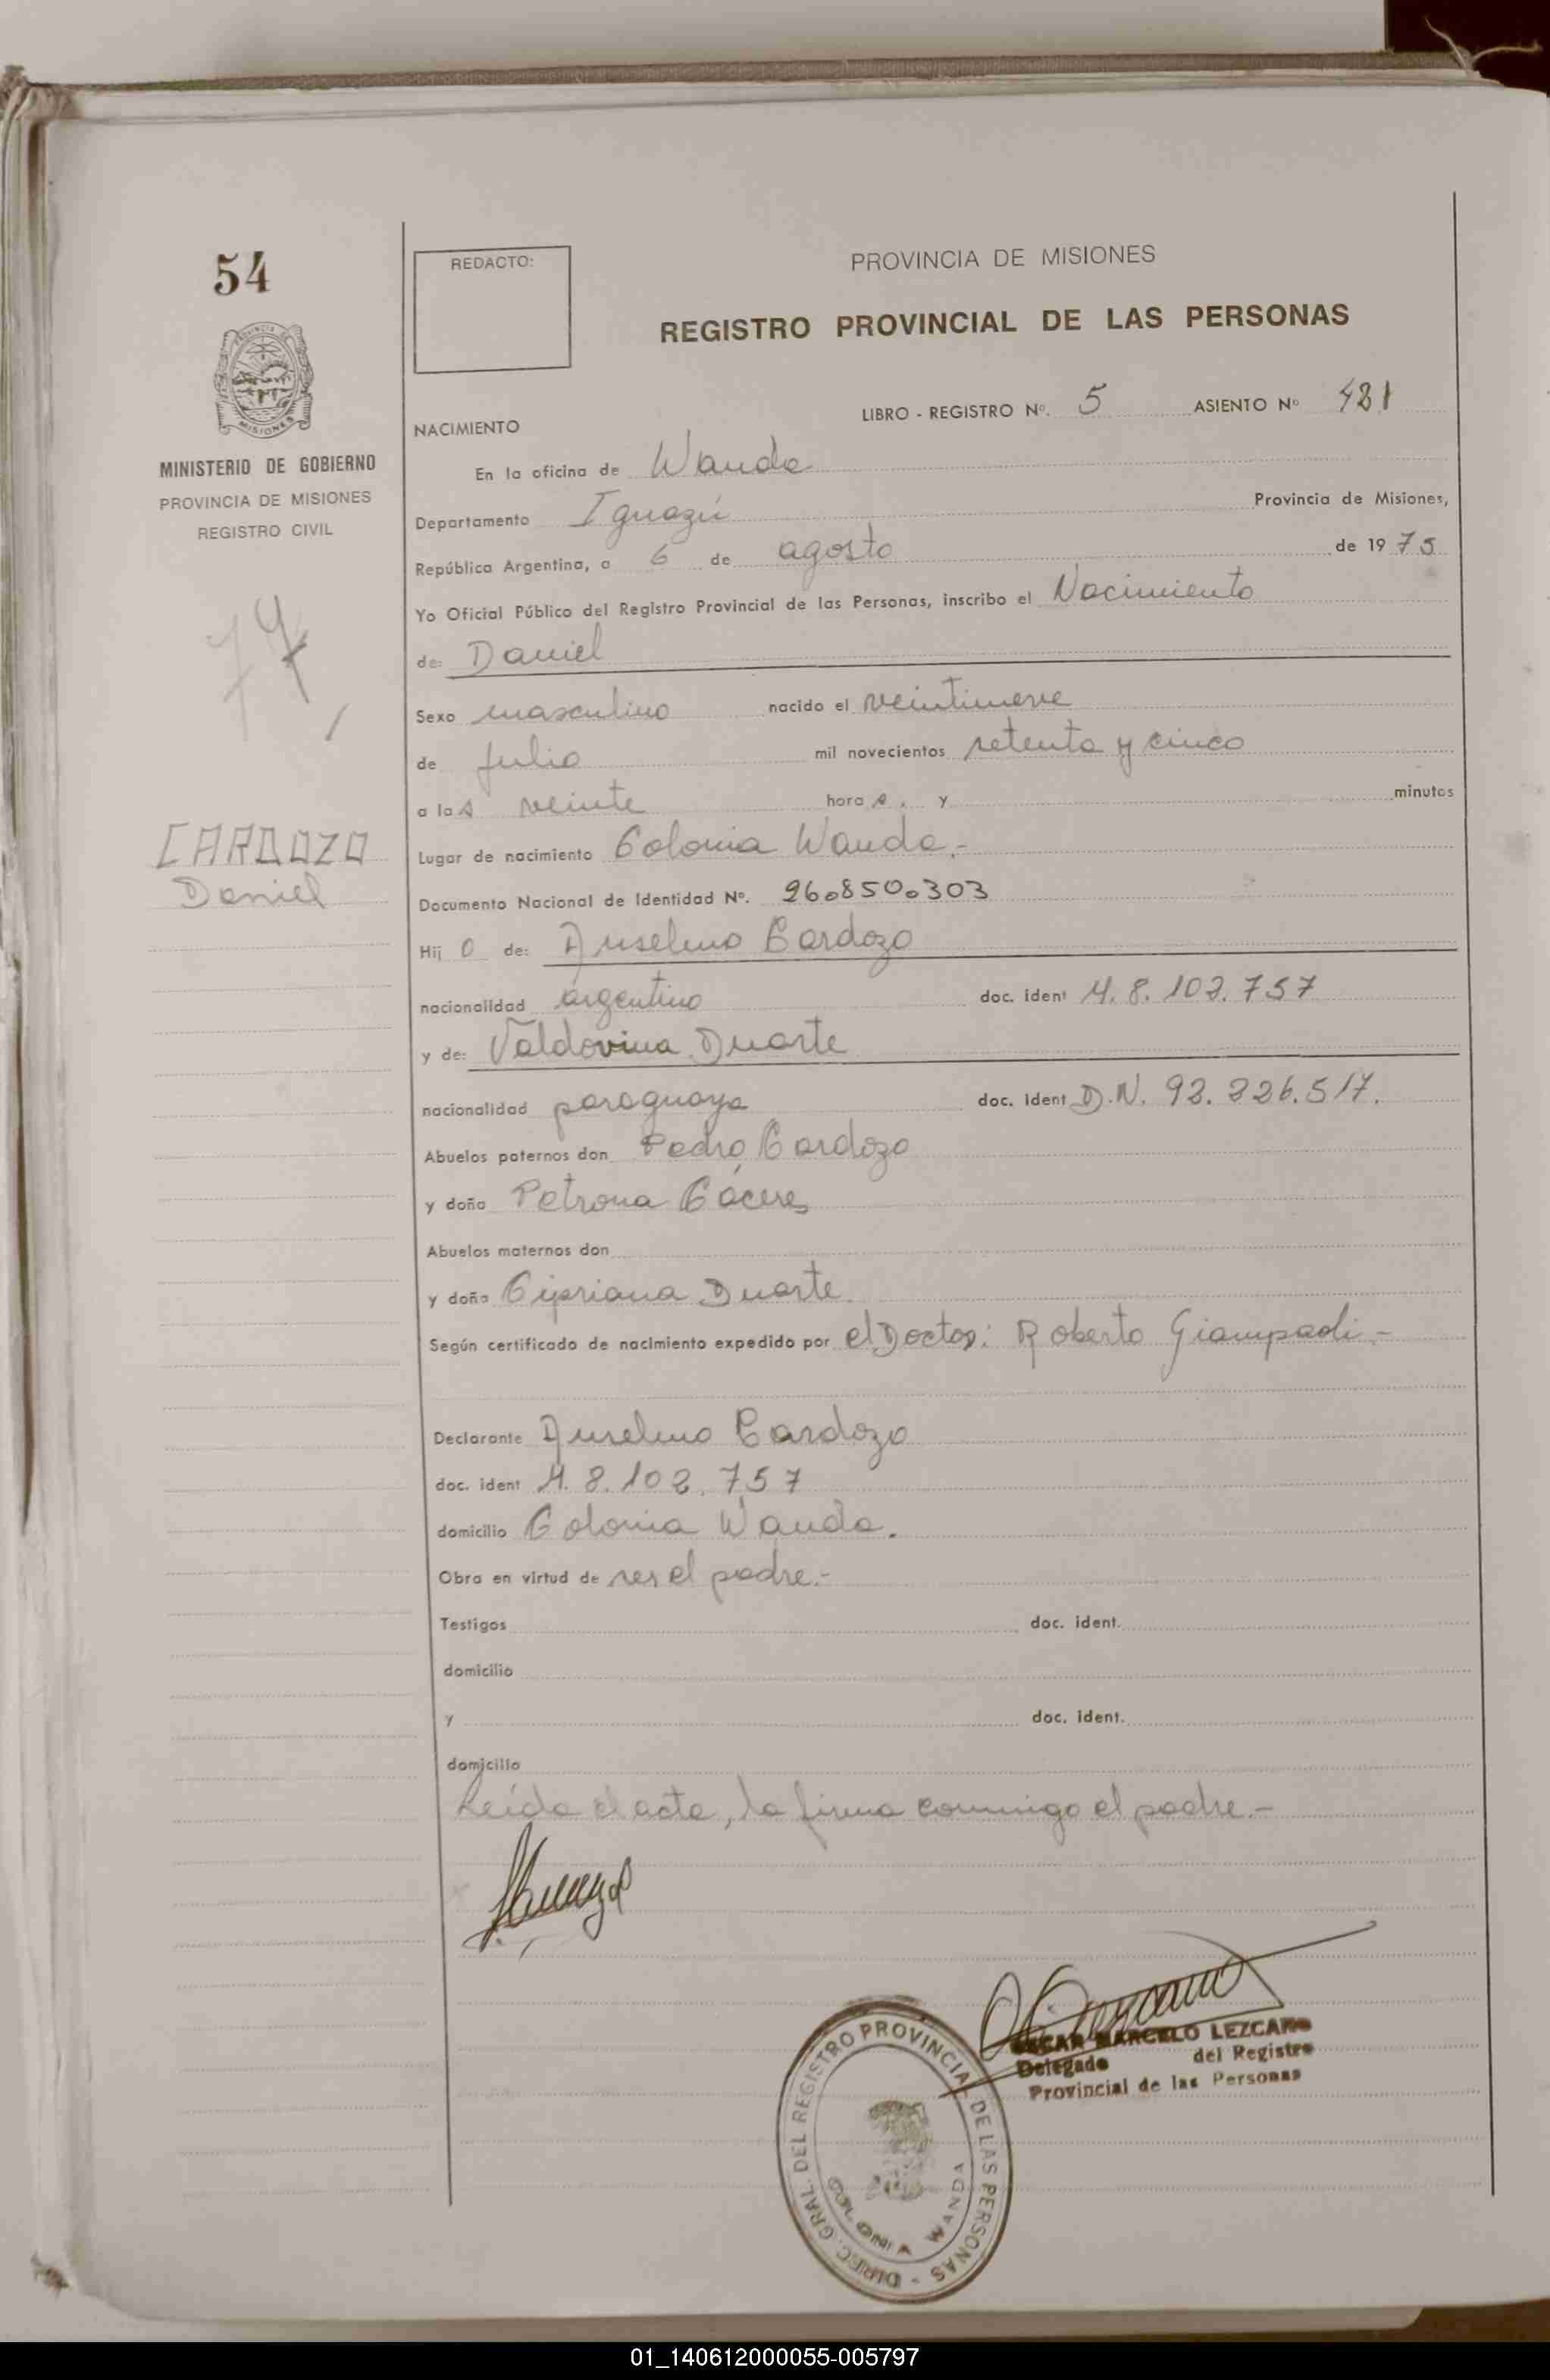 54
REDACTO:
PROVINCIA DE MISIONES
REGISTRO PROVINCIAL DE LAS PERSONAS
MISIONES
MINISTERIO DE GOBIERNO
PROVINCIA DE MISIONES
REGISTRO CIVIL
LIBRO - REGISTRO Nº. 5 ASIENTO Nº 421
NACIMIENTO
En la oficina de Wanda
Departamento Iguazú Provincia de Misiones,
República Argentina, a 6 de agosto de 1975
Yo Oficial Público del Registro Provincial de las Personas, inscribo el Nacimiento
de: Daniel
Sexo masculino nacido el veintinueve
de julio mil novecientos setenta y cinco
a las veinte hora s. y minutos
CARDOZO
Daniel
Lugar de nacimiento Colonia Wanda.-
Documento Nacional de Identidad Nº. 26.850.303
Hij o de: Anselmo Cardozo
nacionalidad argentino doc. ident M. 8. 102. 757
y de: Valdovina Duarte
nacionalidad paraguaya doc. ident D.N. 92. 226. 517.
Abuelos paternos don Pedro Cardozo
y doña Petrona Cáceres
Abuelos maternos don
y doña Cipriana Duarte
Según certificado de nacimiento expedido por el Doctor: Roberto Giampaoli.-
Declarante Anselmo Cardozo
doc. ident M. 8. 102. 757
domicilio Colonia Wanda.
Obra en virtud de ser el padre.-
Testigos doc. ident.
domicilio
y doc. ident.
domicilio
Leída el acta, la firma conmigo el padre.-
OSCAR MARCELO LEZCANO
Delegado del Registro
Provincial de las Personas
DIREC. GRAL. DEL REGISTRO PROVINCIAL DE LAS PERSONAS -
COLONIA WANDA
01_140612000055-005797